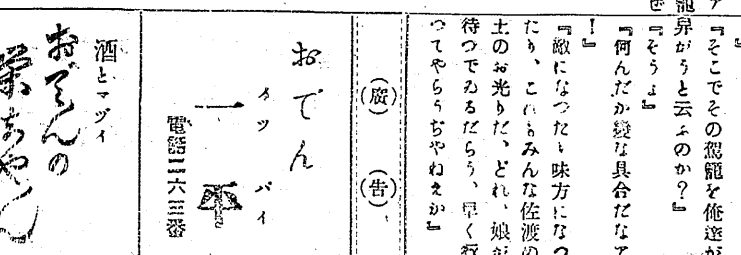 『そこでその駕籠を俺達が
舁がうと云ふのか？』
『そうよ』
『何んだか変な具合だなア
！』
『敵になつたり味方になつ
たり、これもみんな佐渡の
土のお光りだ、どれ、娘が
待つてゐるだらう、早く行
つてやらうぢやねえか』
（廣）（告）
おでん
イッパイ
一平
電話二六三番
酒とマヅイ
おでんの
栄ちやん